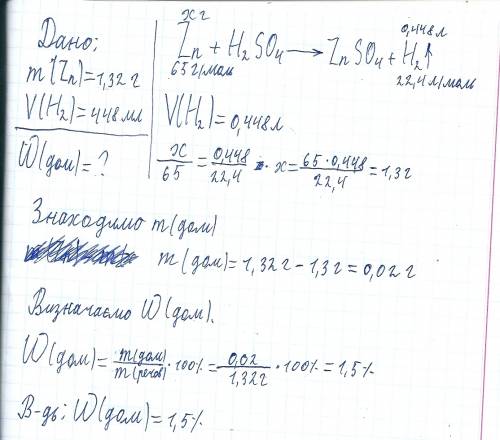 Дано:
m(Zn)=1,32 г
V(H₂)=448 мл
W(дом)=?
x г
0,448 л
Zn + H₂SO₄ → ZnSO₄ + H₂↑
65 г/моль
22,4 л/моль
V(H₂)=0,448 л
x/65 = 0,448/22,4 x = 65·0,448/22,4 = 1,3 г
Знаходимо m(дом)
m(дом)=1,32 г – 1,3 г = 0,02 г
Визначаємо W(дом).
W(дом)= m(дом)/m(речов) ·100% = 0,02/1,32 г ·100% = 1,5%
В-дь: W(дом)=1,5%